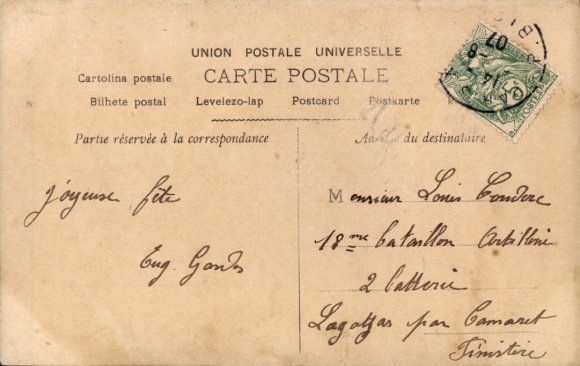 UNION POSTALE UNIVERSELLE
CARTE POSTALE
Cartolina postale
Bilhete postal Levelezo-lap Postcard Postkarte
Partie réservée à la correspondance
du destinataire
Joyeuse fête
Eug.
Monsieur Louis Couderc
18me bataillon Artillerie
2 batterie
Lagatjar par Camaret
Finistère
07
POSTES